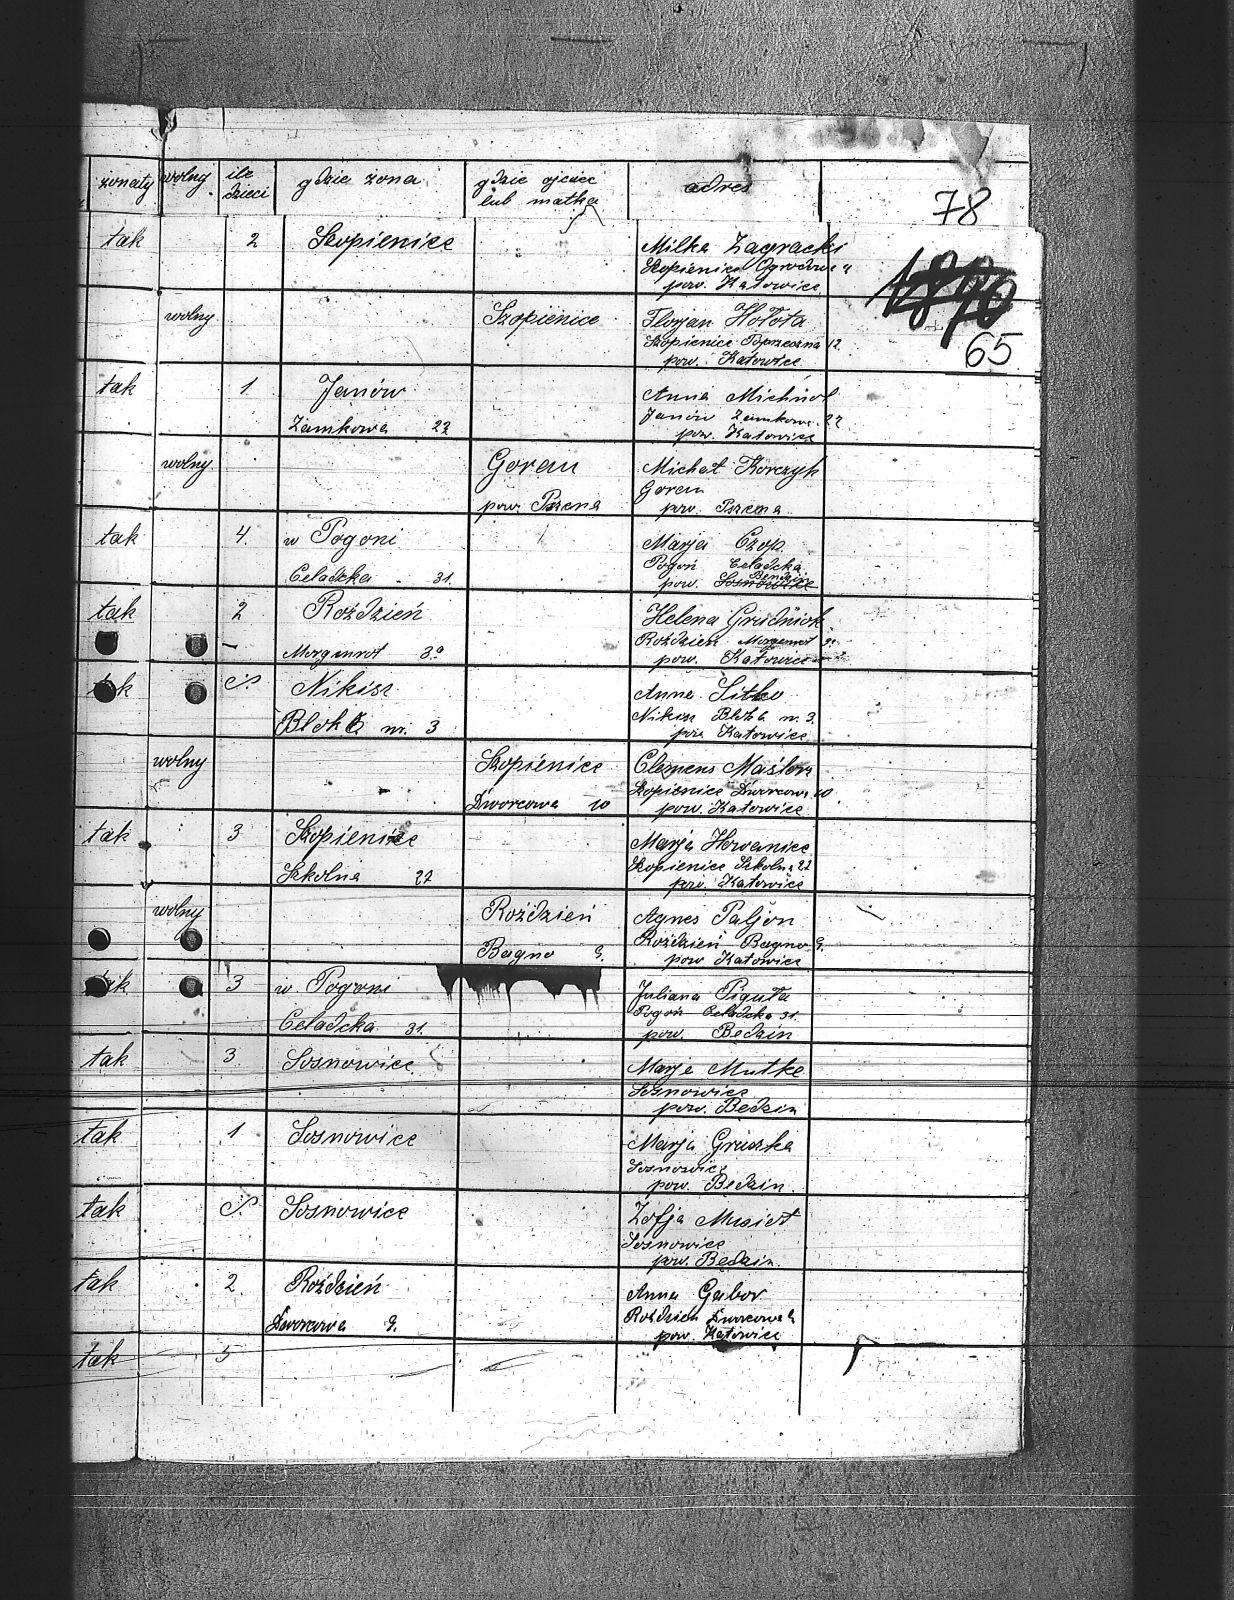 żonaty wolny ile dzieci gdzie żona gdzie ojciec lub matka adres
78
tak 2 Szopienice Milka Zagracki
Szopienice Ogrodowa
pow. Katowice
1890
65
wolny Szopienice Florjan Hołota
Szopienice Poprzeczna 12
pow. Katowice
tak 1 Janów Anna Michnol
Zamkowa 22 Janów Zamkowa 22
pow. Katowice
wolny Goran Michał Korczyk
Goran
pow. Pszena pow. Pszena
tak 4 w Pogoni Marja Czop
Celadzka 31. Pogoń Celadzka
pow. Sosnowice Bendzin
tak 2 Roździen Helena Grudniok
Morgenrot Roździen Morgenrot
pow. Katowice
tak Nikisz Anna Sitko
Blok nr. 3 Nikisz Blok n. 3.
pow. Katowice
wolny Szopienice Clemens Maślon
Dworcowa 10 Szopienice Dworcowa 10
pow. Katowice
tak 3 Szopienice Marja Howaniec
Szkolna 22 Szopienice Szkolna 22
pow. Katowice
wolny Roździeń Agnes Paljon
Bagno 9. Roździeń Bagno 9.
pow. Katowice
tak 3 w Pogoni Juliana Piguła
Celadzka 31. Pogoń Celadzka 31.
pow. Będzin
tak 3. Sosnowice Marja Mutke
Sosnowice
pow. Będzin
tak 1 Sosnowice Marja Gruszka
Sosnowice
pow. Będzin
tak Sosnowice Zofja Musioł
Sosnowice
pow. Będzin
tak 2. Roździeń Anna Gabor
Dworcowa 9. Roździen Dworcowa 9
pow. Katowice
tak 5